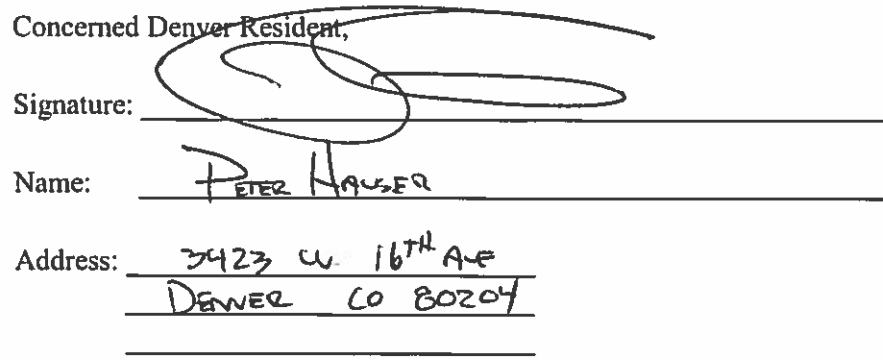 Concerned Denver Resident,
Signature:
Name: PETER HAUSER
Address: 3423 W. 16TH AVE
DENVER CO 80204